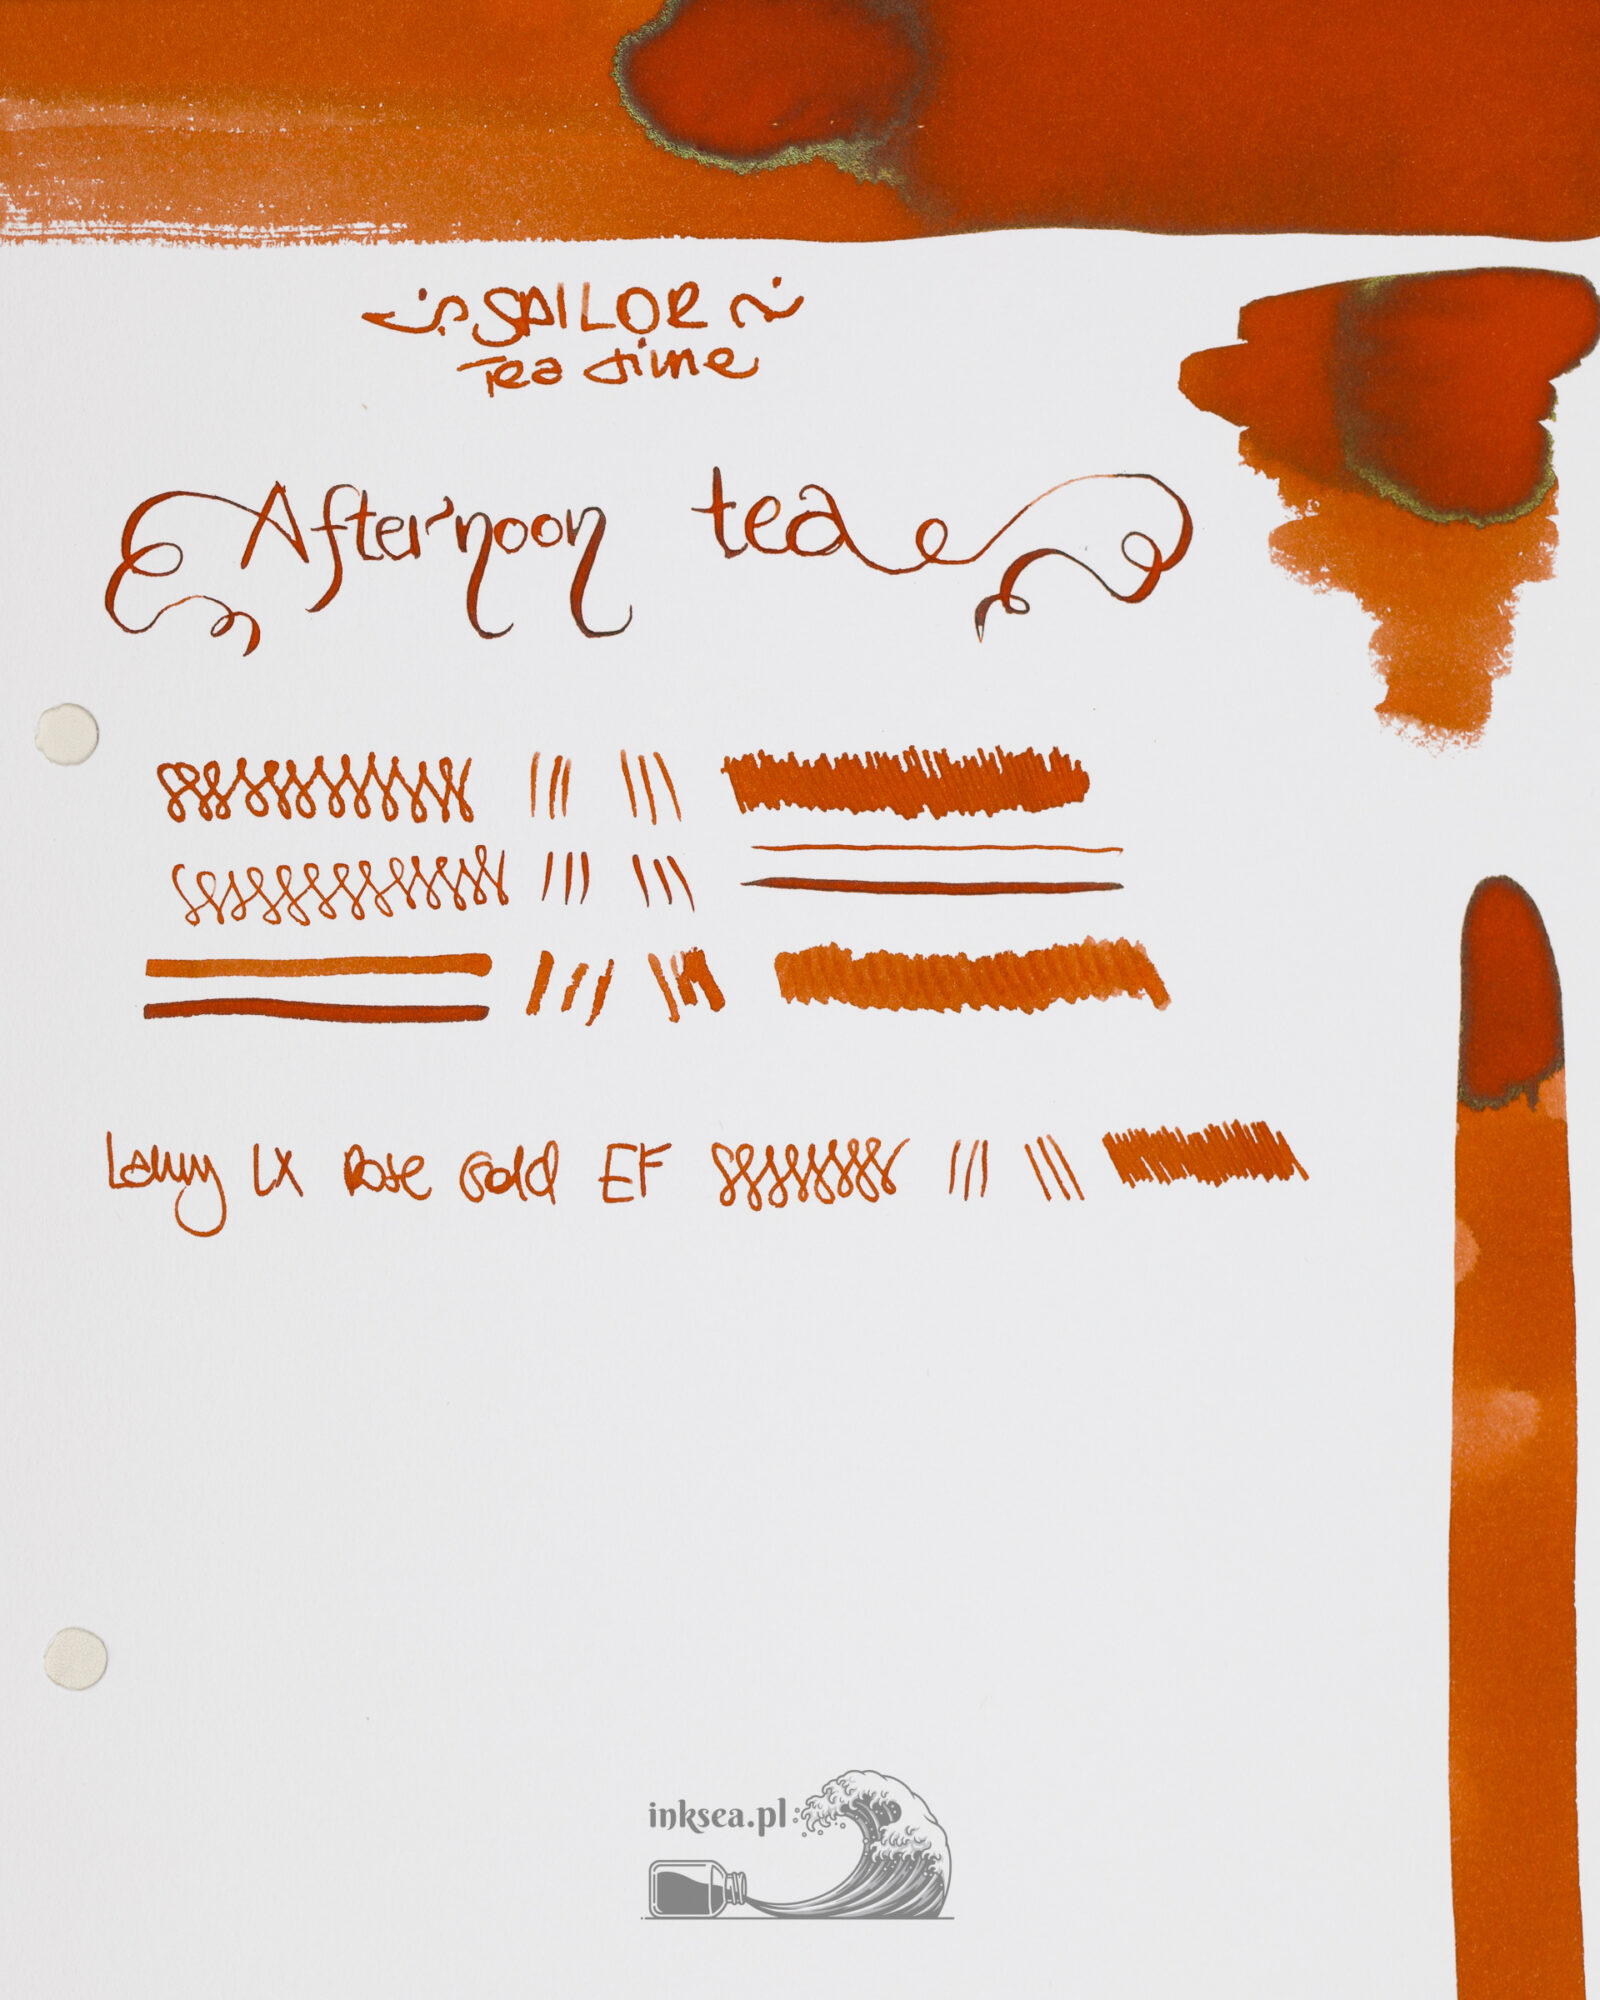 SAILOR
Tea time
Afternoon tea
Lamy LX Rose Gold EF
inksea.pl